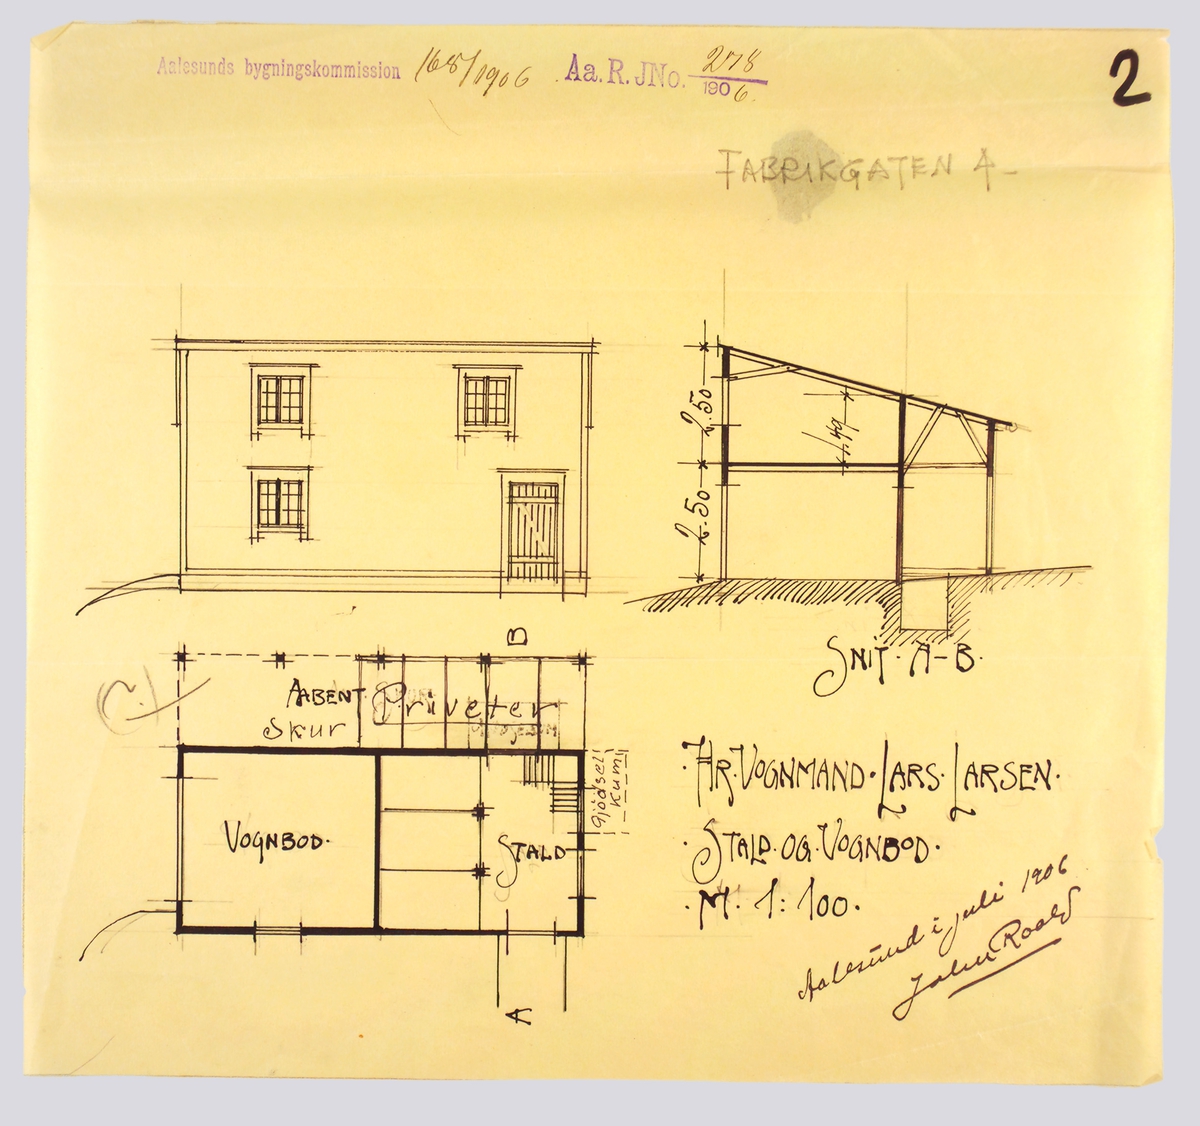 Aalesunds bygningskommission 168/1906 Aa. R. JNo. 278/1906.
2
FABRIKGATEN 4-
2.50
2.50
1.49
SNIT · A-B ·
B
AABENT
Skur
Priveter
Gjödsel
Kum
VOGNBOD ·
STALD
A
· HR · VOGNMAND · LARS · LARSEN ·
· STALD · OG · VOGNBOD ·
· M · 1:100 ·
Aalesund i juli 1906
John Roald